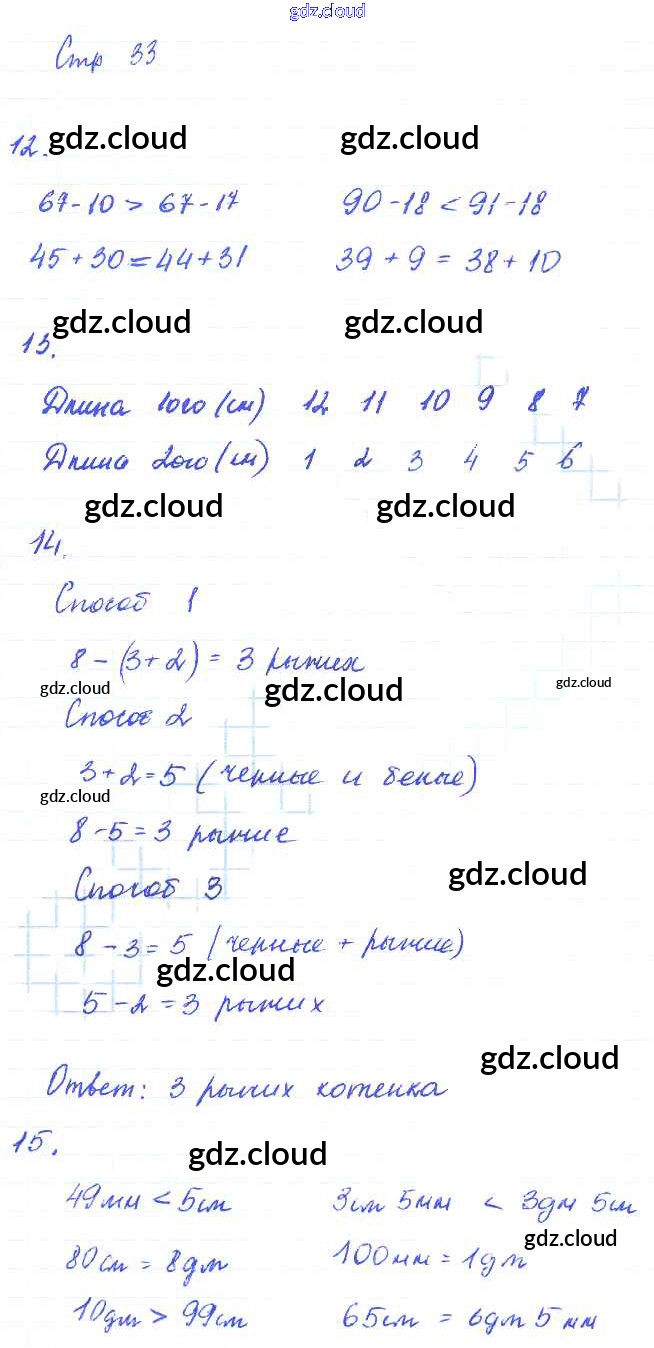 gdz.cloud
Стр 33
12. gdz.cloud gdz.cloud
67-10 > 67-17 90-18 < 91-18
45+30=44+31 39+9 = 38+10
gdz.cloud gdz.cloud
13.
Длина 1ого (см) 12 11 10 9 8 7
Длина 2ого (см) 1 2 3 4 5 6
gdz.cloud gdz.cloud
14.
Способ 1
8-(3+2) = 3 рыжих
gdz.cloud gdz.cloud gdz.cloud
Способ 2
3+2=5 (черные и белые)
gdz.cloud
8-5=3 рыжие
Способ 3 gdz.cloud
8-3=5 (черные + рыжие)
gdz.cloud
5-2=3 рыжих
gdz.cloud
Ответ: 3 рыжих котенка
15. gdz.cloud
49мм < 5см 3см 5мм < 3дм 5см
gdz.cloud
80см = 8дм 100мм = 1дм
10дм > 99см 65см = 6дм 5мм